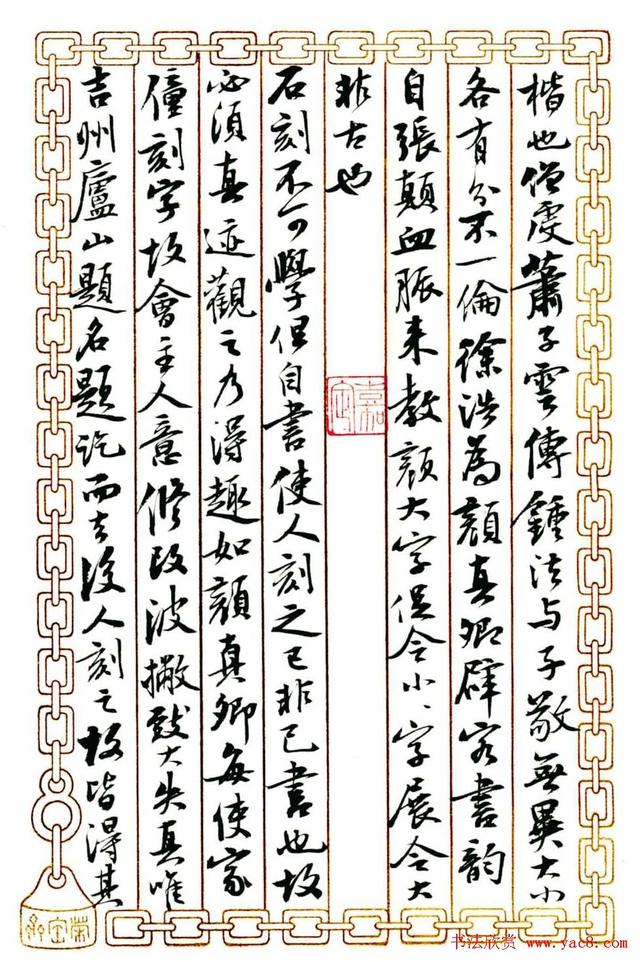 楷也僧虔蕭子雲傳鍾法与子敬無異大小
各有分不一倫徐浩為顏真卿辟客書韵
自張顛血脈来教顏大字促令小〻字展令大
非古也
石刻不可學但自書使人刻之已非己書也故
必須真迹觀之乃得趣如顏真卿每使家
僮刻字故會主人意修改波撇致大失真唯
吉州廬山題名題訖而去後人刻之故皆得其
榮宝斋
书法欣赏 www.yac8.com